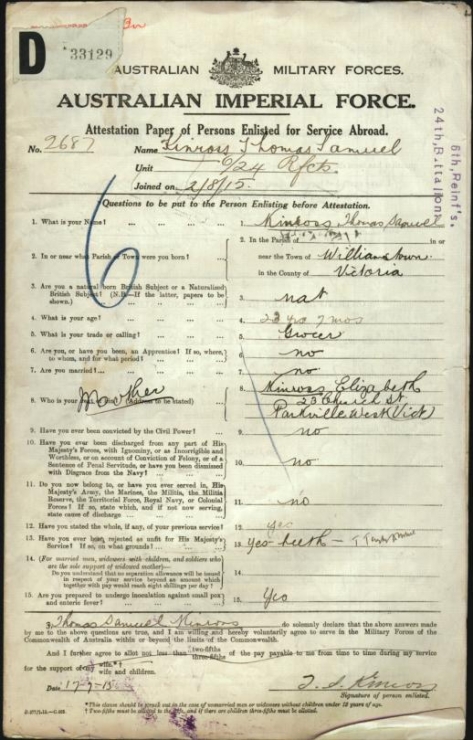 D
33129
AUSTRALIAN MILITARY FORCES.
AUSTRALIAN IMPERIAL FORCE.
Attestation Paper of Persons Enlisted for Service Abroad.
No. 2687 Name Kinross Thomas Samuel
Unit 6/24 Rfcts
Joined on 2/8/15
6th, Reinf's.
24th, Battalion
Questions to be put to the Person Enlisting before Attestation.
6
1. What is your Name? ... 1. Kinross Thomas Samuel
2. In or near what Parish or Town were you born? ... 2. In the Parish of in or
near the Town of Williamstown
in the County of Victoria
3. Are you a natural born British Subject or a Naturalized
British Subject? (N.B.—If the latter, papers to be
shown.) 3. nat
4. What is your age? ... 4. 23 yrs 7 mos
5. What is your trade or calling? ... 5. Grocer
6. Are you, or have you been, an Apprentice? If so, where,
to whom, and for what period? 6. no
7. Are you married? ... 7. no
8. Who is your next of kin? (Address to be stated) 8. Kinross Elizabeth
Mother
23 Church St
Parkville West (Vict)
9. Have you ever been convicted by the Civil Power? ... 9. no
10. Have you ever been discharged from any part of His
Majesty's Forces, with Ignominy, or as Incorrigible and
Worthless, or on account of Conviction of Felony, or of a
Sentence of Penal Servitude, or have you been dismissed
with Disgrace from the Navy? 10. no
11. Do you now belong to, or have you ever served in, His
Majesty's Army, the Marines, the Militia, the Militia
Reserve, the Territorial Force, Royal Navy, or Colonial
Forces? If so, state which, and if not now serving,
state cause of discharge 11. no
12. Have you stated the whole, if any, of your previous service? 12. yes
13. Have you ever been rejected as unfit for His Majesty's
Service? If so, on what grounds? 13. yes teeth —
14. (For married men, widowers with children, and soldiers who
are the sole support of widowed mother)—
Do you understand that no separation allowance will be issued
in respect of your service beyond an amount which
together with pay would reach eight shillings per day? 14.
15. Are you prepared to undergo inoculation against small pox
and enteric fever? 15. Yes
I, Thomas Samuel Kinross do solemnly declare that the above answers made
by me to the above questions are true, and I am willing and hereby voluntarily agree to serve in the Military Forces of the
Commonwealth of Australia within or beyond the limits of the Commonwealth.
And I further agree to allot not less than two-fifths three-fifths of the pay payable to me from time to time during my service
for the support of my wife.*† wife and children.
Date 17-7-15
T. S. Kinross
Signature of person enlisted.
*This clause should be struck out in the case of unmarried men or widowers without children under 18 years of age.
† Two-fifths must be allotted to the wife, and if there are children three-fifths must be allotted.